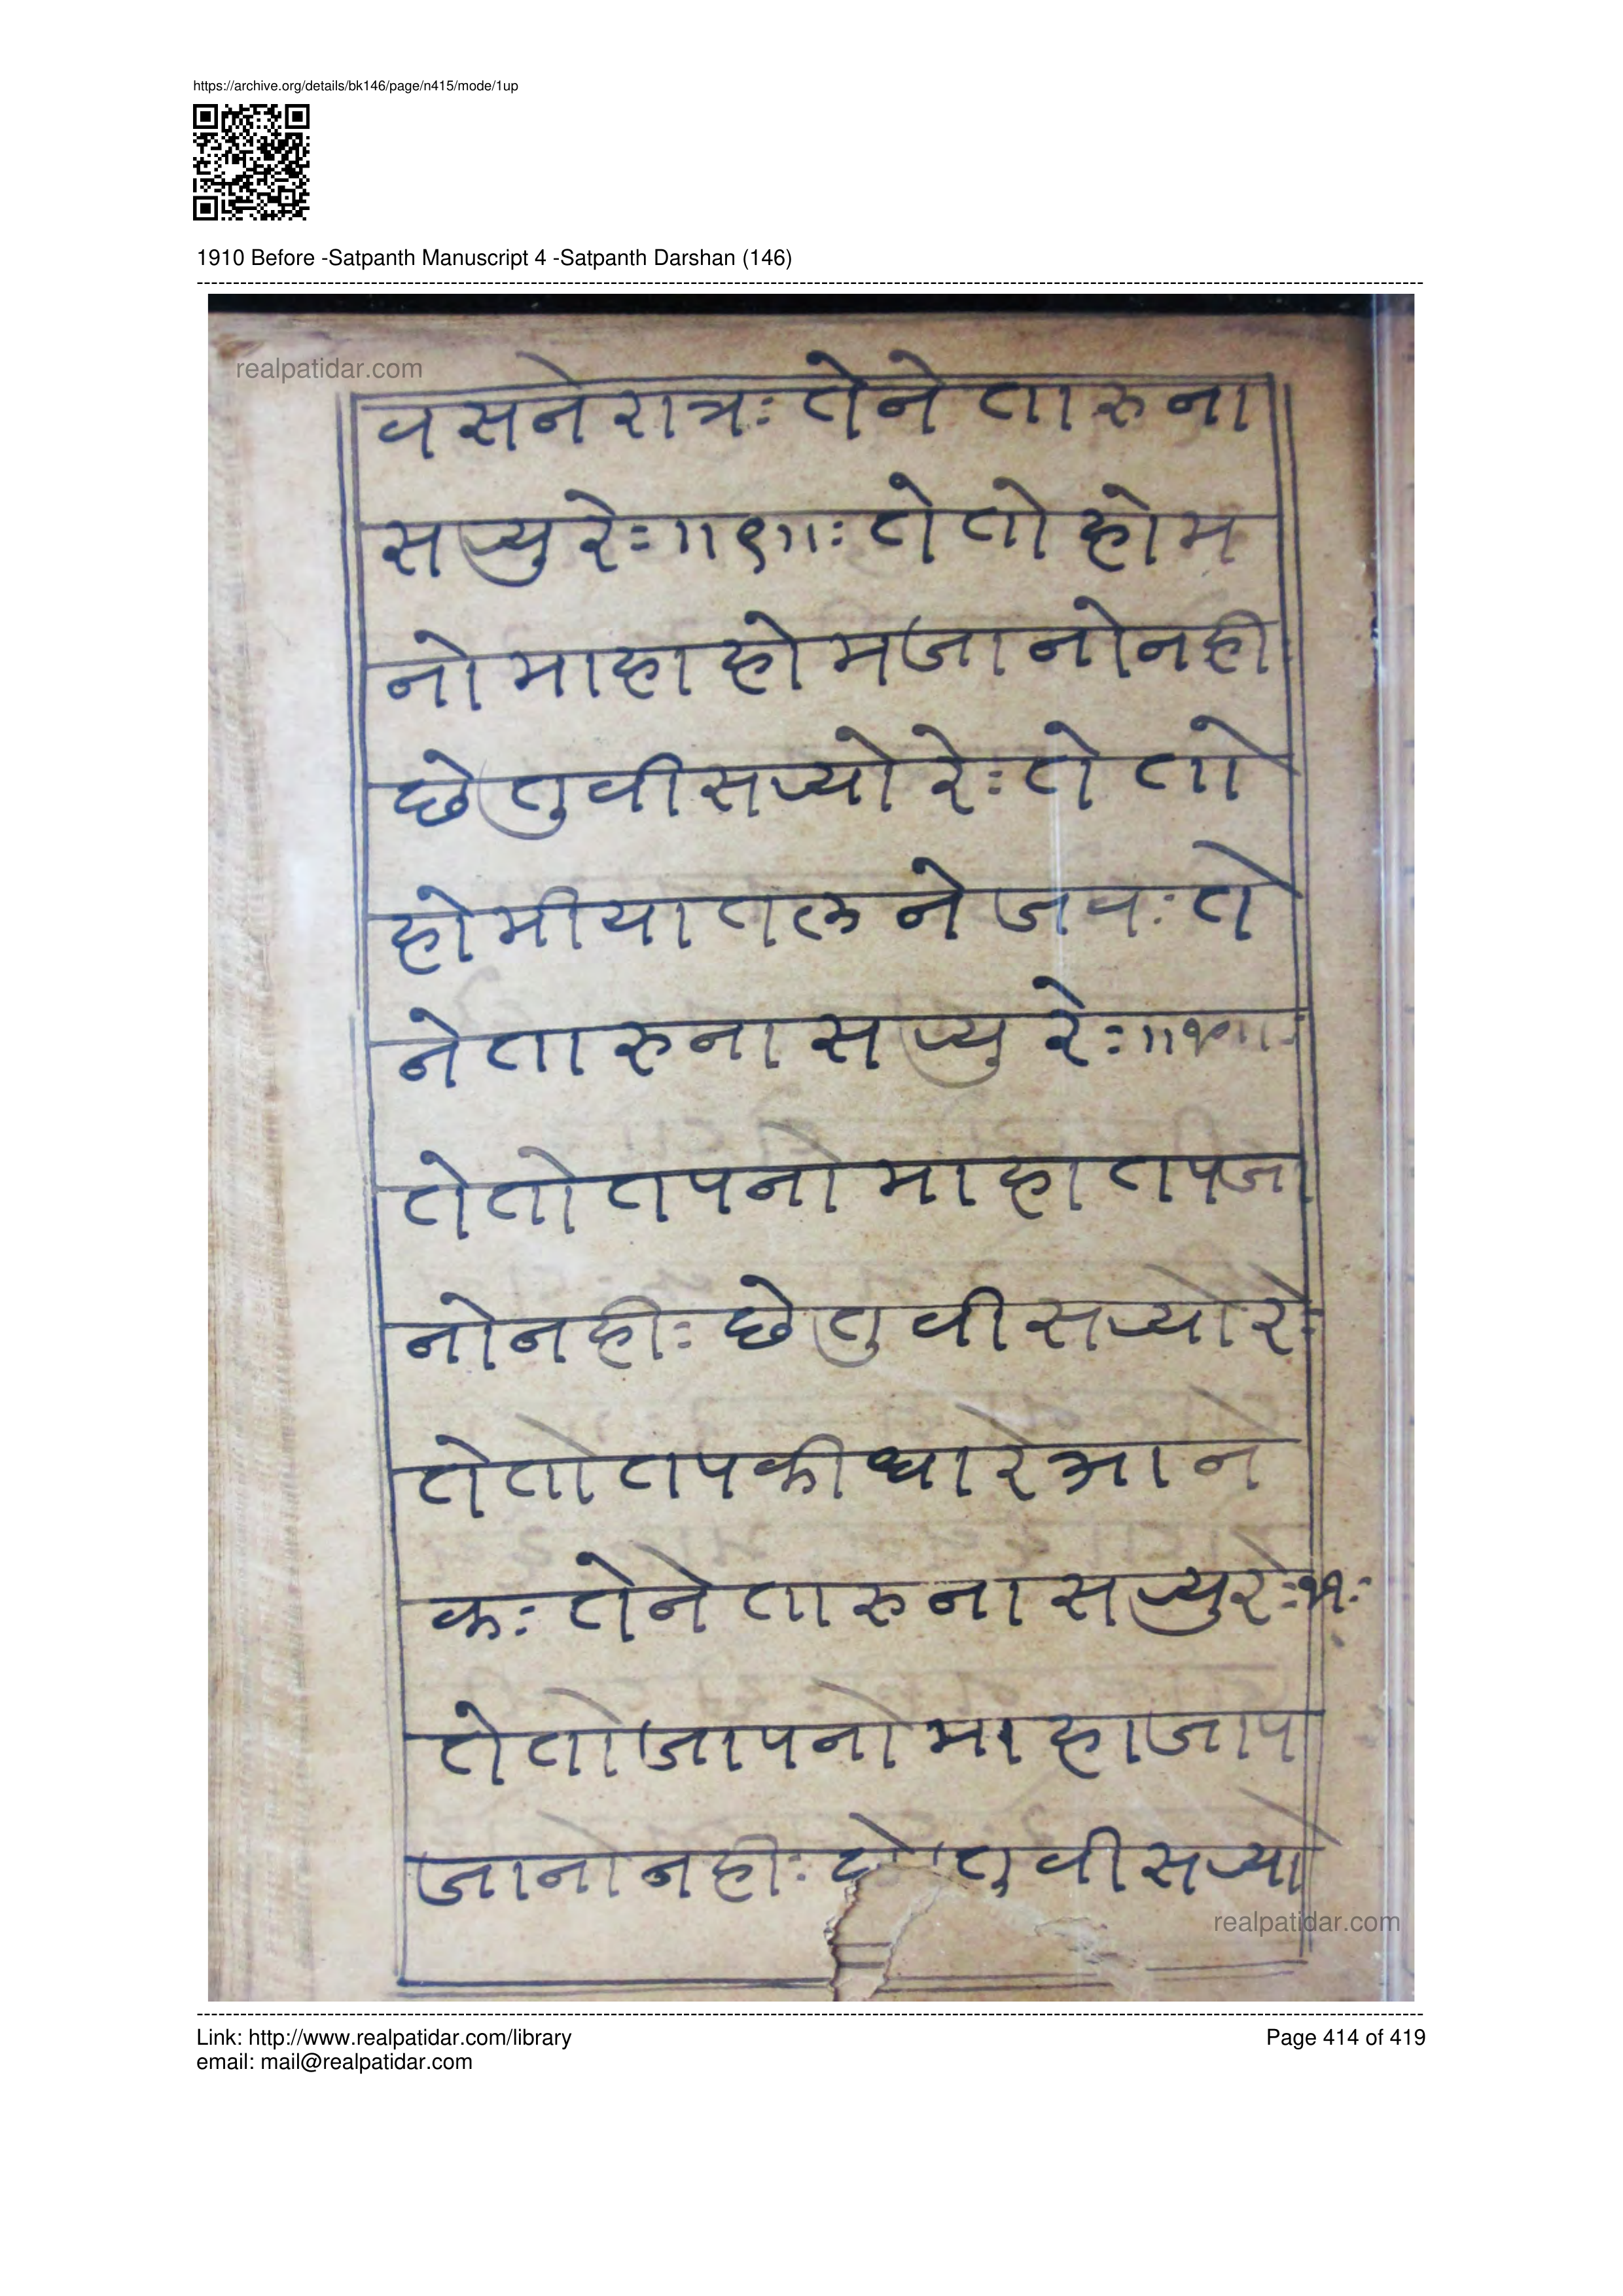 https://archive.org/details/bk146/page/n415/mode/1up
1910 Before -Satpanth Manuscript 4 -Satpanth Darshan (146)
realpatidar.com
वसनेरात्रः तेने तारुना
सज्युरेः॥९॥ः तेतोहोम
नोमाहाहोमजानोनही
छेतुवीसज्योरेः तेतो
होमीयातलनेजवः ते
नेतारुनासज्युरेः॥१०॥ः
तेतोतपनोमाहातपजा
नोनहीः छेतुवीसज्योरेः
तेतोतपकीधारेआने
कः तेनेतारुनासज्युरेः११ः
तेतोजापनोमाहाजाप
जानोनहीः छेतुवीसज्यो
realpatidar.com
Link: http://www.realpatidar.com/library
Page 414 of 419
email: mail@realpatidar.com